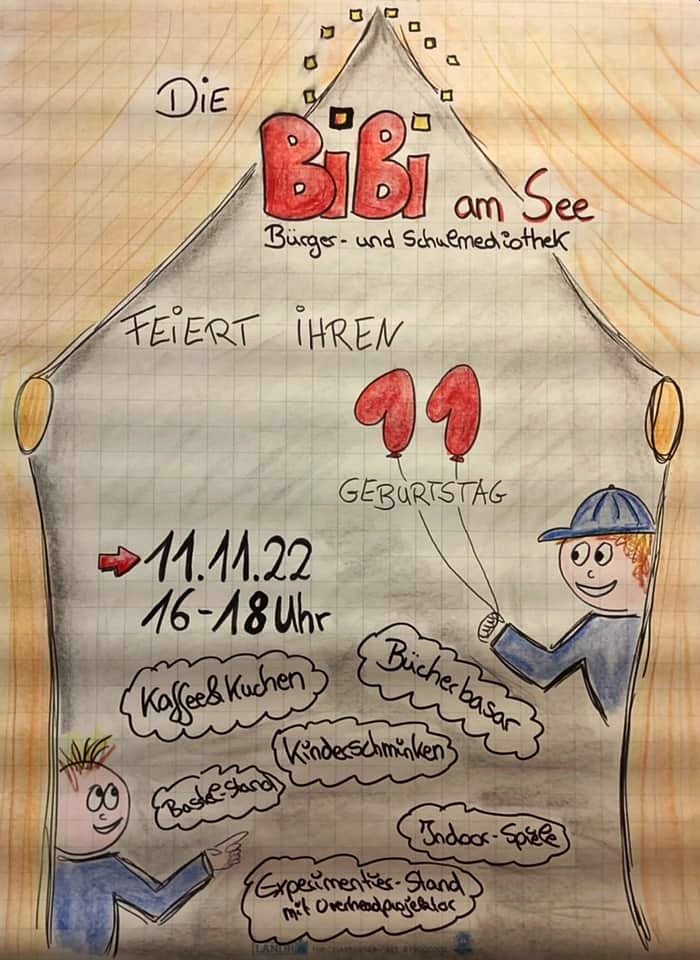 DiE
BiBi am See
Bürger- und Schulmediothek
FEiERT iHREN
11
GEBURTSTAG
11.11.22
16-18 Uhr
Kaffee & Kuchen
Bücherbasar
Kinderschminken
Bastel-Stand
Indoor-Spiele
Experimentier-Stand
mit Overheadprojektor